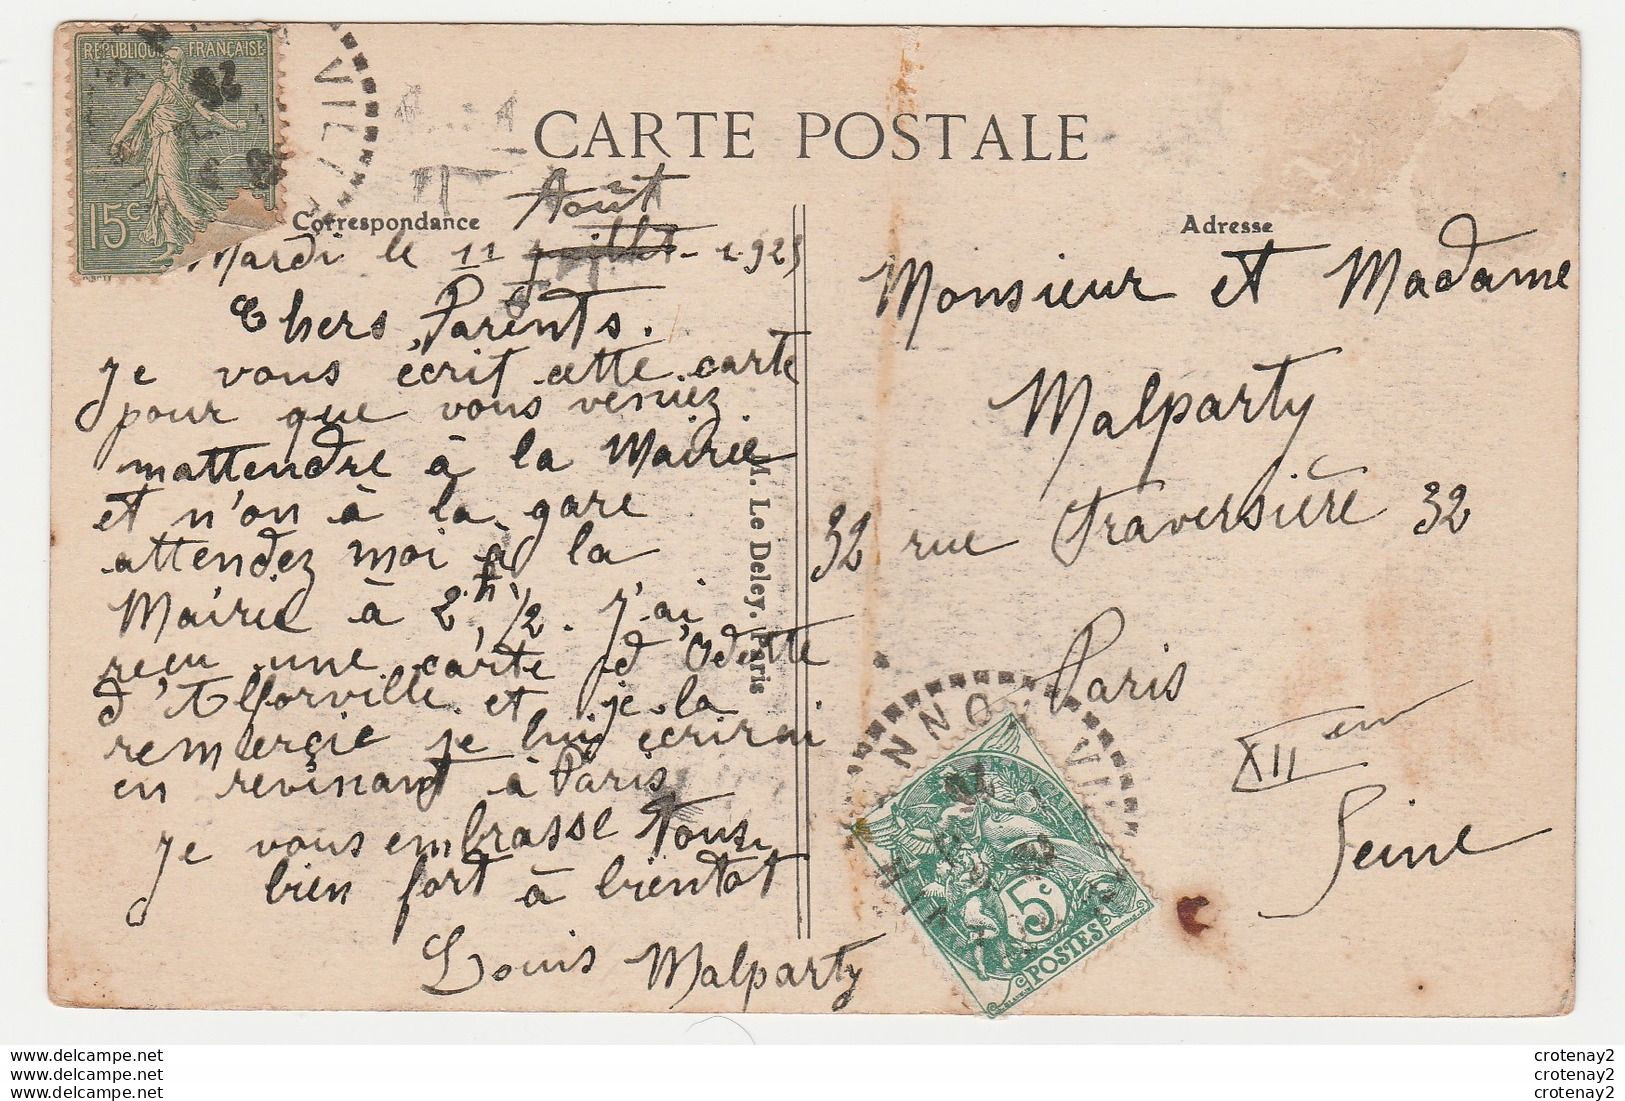 CARTE POSTALE
Correspondance
Adresse
RÉPUBLIQUE FRANÇAISE
15c
Août
Mardi le 11 juillet 1925
Chers Parents.
Je vous écrit cette carte
pour que vous veniez
mattendre à la Mairie
et n'on à la gare
attendez moi à la
Mairie à 2h, 1/2. J'ai
reçu une carte d'Odette
d'Alforville et je la
remerçie je lui écrirai
en revinant à Paris
Je vous embrasse Tous
bien fort à bientot
Louis Malparty
M. Le Deley, Paris
Monsieur et Madame
Malparty
32 rue Traversière 32
Paris
XII em
Seine
5c
POSTES
www.delcampe.net
www.delcampe.net
www.delcampe.net
crotenay2
crotenay2
crotenay2